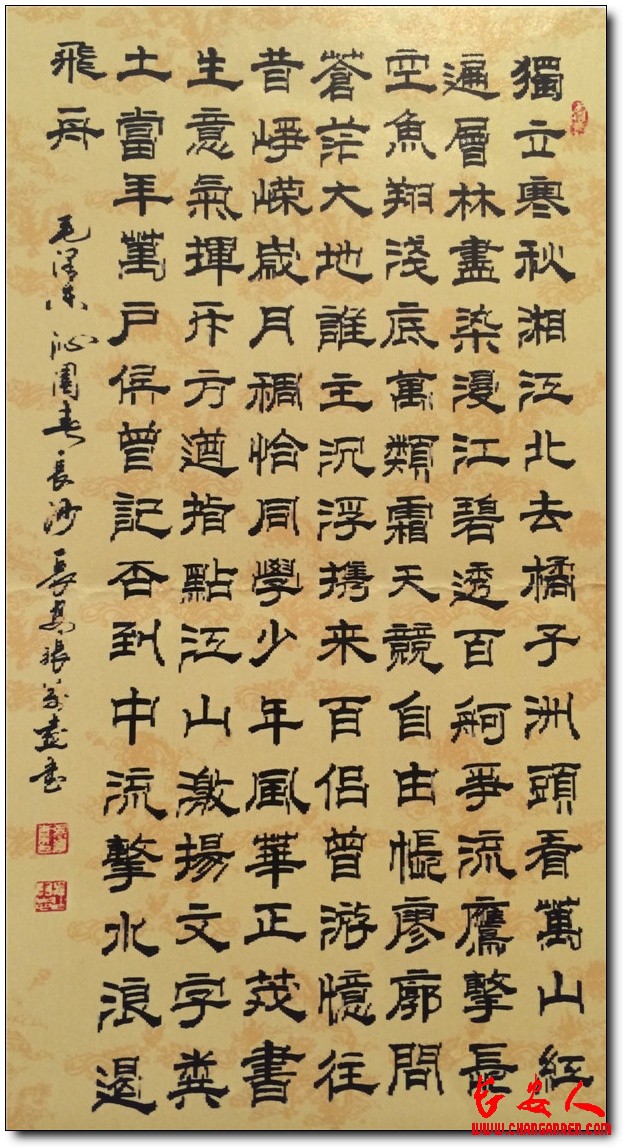 獨立寒秋湘江北去橘子洲頭看萬山紅
遍層林盡染漫江碧透百舸爭流鷹擊長
空魚翔淺底萬類霜天競自由悵廖廓問
蒼茫大地誰主沉浮携来百侶曾游憶往
昔崢嶸歲月稠恰同學少年風華正茂書
生意氣揮斥方遒指點江山激揚文字糞
土當年萬户侯曾記否到中流擊水浪遏
飛舟
毛澤东沁園春長沙長安張書
长安人
WWW.CHANGANREN.COM